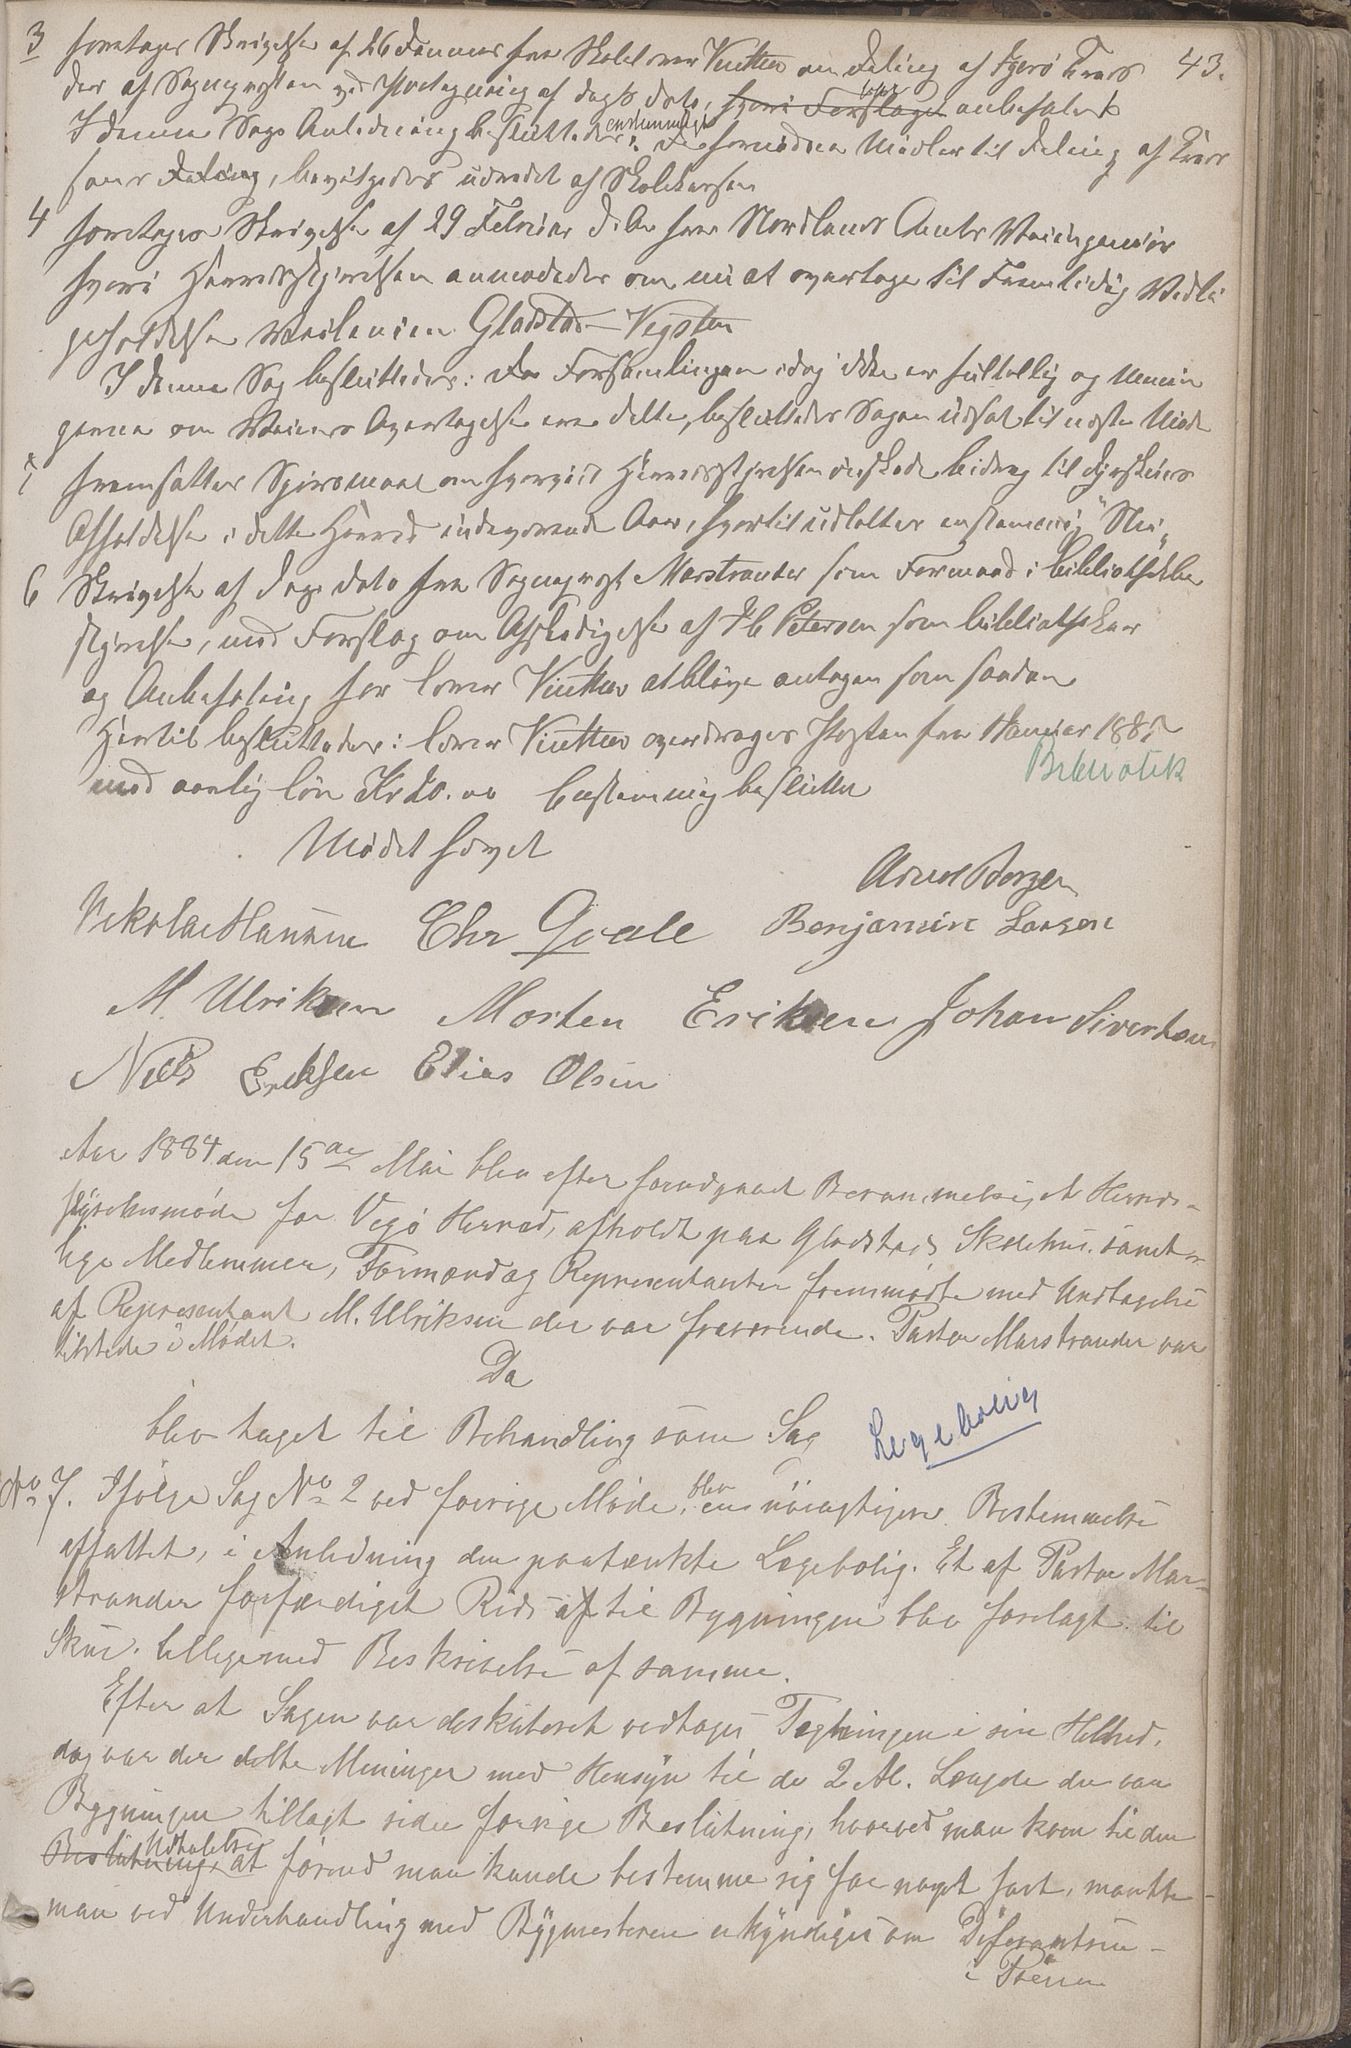 43.
3 foretages Skrivelse af 26 Januar fra Skolelærer Vinther om Deling af Igerø Kreds
der af Sognepresten ved Paategning af dags dato, hvori Forslaget anbefales
I denne Sags Anledning besluttedes enstemmigt: De fornødne Midler til Deling af Kreds
som Deling, bevilgedes udredet af Skolekassen
4 foretages Skrivelse af 29 Februar d.A. fra Nordlands Amts Veiingeniør
hvori Herredsstyrelsen anmodedes om nu at overtage til Fremtidig Vedli
geholdelse Veilinien Gladstad - Vegsten
I denne Sag besluttedes: Da Forsamlingen idag ikke er fultallig og Menin
gerne om Veiens Overtagelse ere delte, besluttedes Sagen udsat til næste Møde
5 fremsattes Spørsmaal om hvorvidt Herredsstyrelsen ønskede bidrag til Dyrskuers
Afholdelse i dette Herred indeværende Aar, hvortil udtaltes enstemmig "Nei"
6 Skrivelse af Dags Dato fra Sogneprest Marstrander som Formand i bibliothekbe
styrelsen, med Forslag om Afskedigelse af Petersen som bibliothekar
og Anbefaling for Lærer Vinther at blive antagen som saadan
Hertil besluttedes: Lærer Vinther overdrages Posten fra 1 Januar 188
med aarlig løn Kr 20.00 Enstemmig besluttet
Bibliotek
Mødet hævet
Arnol Borgen
Nikolai Hansen Chr Gaale Benjamin Larsen
M. Ulriksen Morten Eriksen Johan Sivertsen
Nils Eriksen Elias Olsen
Aar 1884 den 15de Mai blev efter forudgaaet Berammelse, et Herreds-
styrelsesmøde for Vegø Herred, afholdt paa Gladstads Skolehus. samt-
lige Medlemmer, Formænd og Representanter fremmødte med Undtagelse
af Representant M. Ulriksen der var fraværende. Pastor Marstrander var
tilstede i Mødet.
Da
blev taget til Behandling som Sag
Legebolig
No 7. Ifølge Sag No 2 ved forrige Møde, blev en nøiagtigere Bestemmelse
affattet, i Anledning den paatænkte Lægebolig. Et af Pastor Mar-
strander forfærdiget Rids af til Bygningen blev forelagt til
Skue. tilligemed Beskrivelse af samme.
Efter at Sagen var diskuteret vedtages Tegningen i sin Helhed,
dog var der delte Meninger med Hensyn til de 2 Al. Længde der var
Bygningen tillagt siden forrige Beslutning, hvorved man kom til den
Beslutning, Udtalelse at førend man kunde bestemme sig for noget fast, maatte
man ved Underhandling med Bygmesteren erkyndiges om Diferantsen
i Prisen